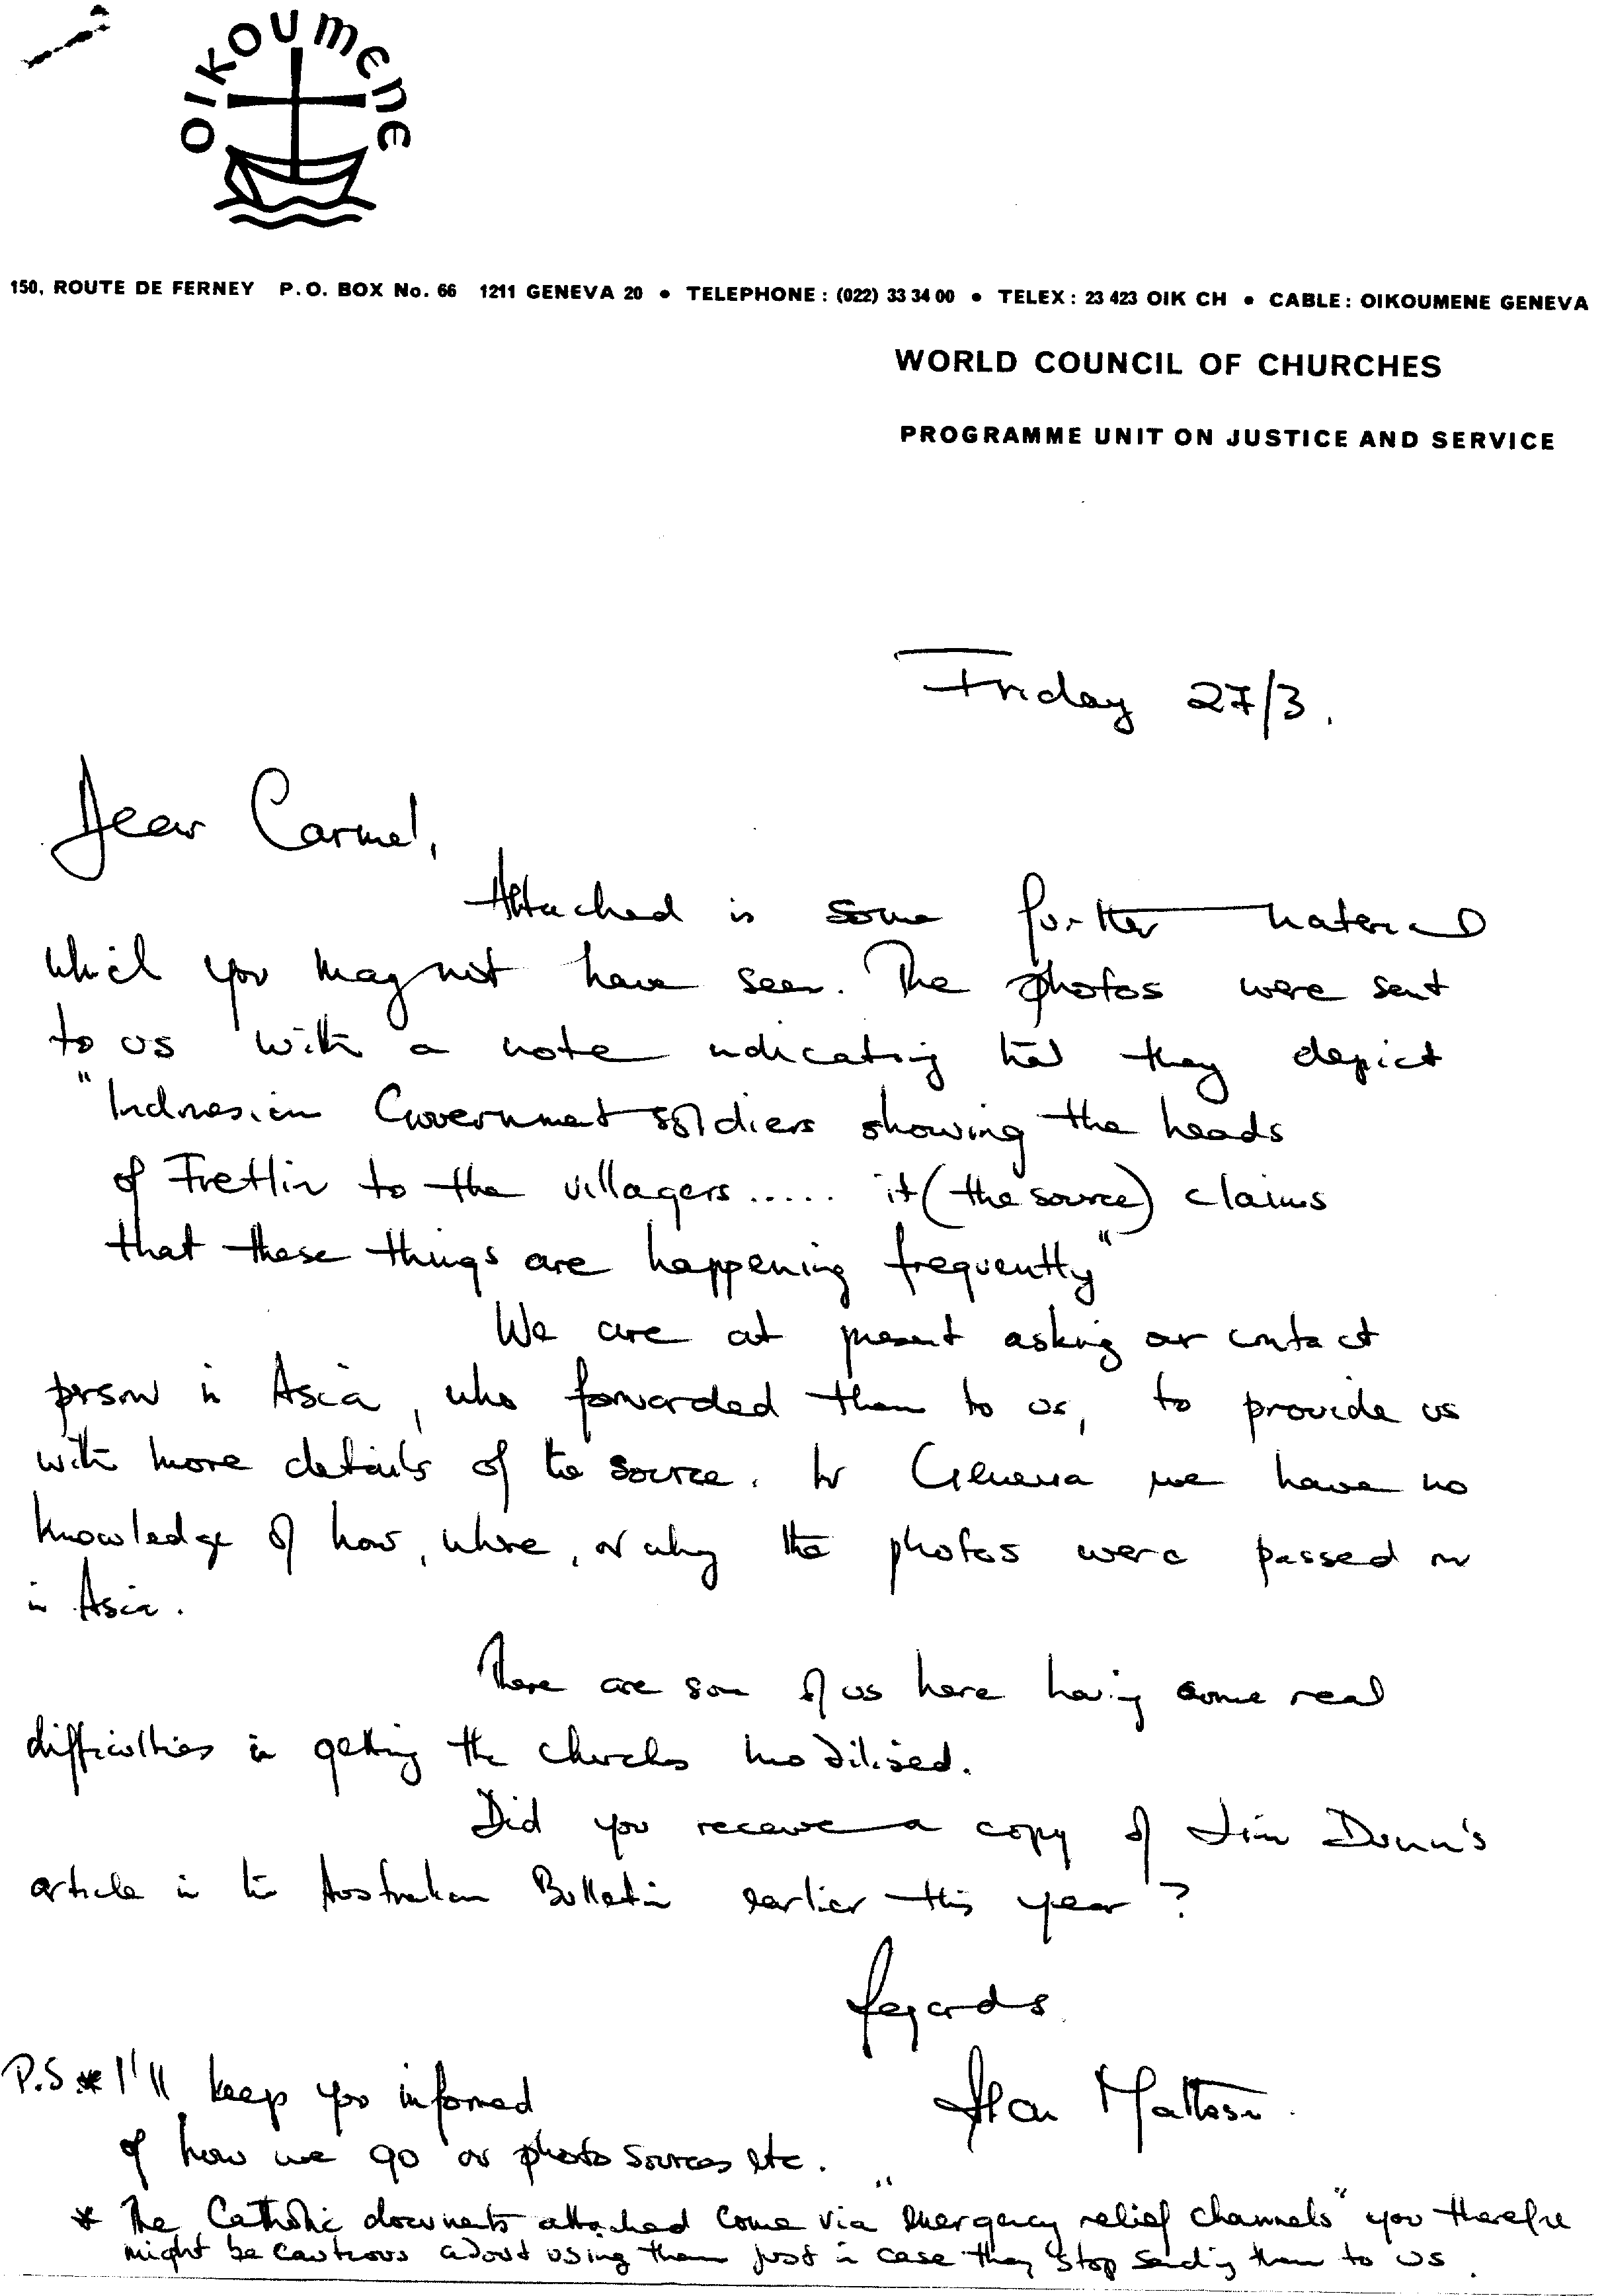 OIKOUMENE
150, ROUTE DE FERNEY P.O. BOX No. 66 1211 GENEVA 20 • TELEPHONE : (022) 33 34 00 • TELEX : 23 423 OIK CH • CABLE : OIKOUMENE GENEVA
WORLD COUNCIL OF CHURCHES
PROGRAMME UNIT ON JUSTICE AND SERVICE
Friday 27/3.
Dear Carmel,
Attached is some further material
which you may not have seen. The photos were sent
to us with a note indicating that they depict
"Indonesian Government soldiers showing the heads
of Fretlin to the villagers ..... it (the source) claims
that these things are happening frequently"
We are at present asking our contact
person in Asia, who forwarded them to us, to provide us
with more details of the source. In Geneva we have no
knowledge of how, where, or why the photos were passed on
in Asia.
There are some of us here having some real
difficulties in getting the churches mobilised.
Did you receive a copy of Jim Dunn's
article in the Australian Bulletin earlier this year?
Regards.
Alan Matheson.
P.S * I'll keep you informed
of how we go on photo sources etc.
* The Catholic documents attached come via "emergency relief channels" you therefore
might be cautious about using them just in case they stop sending them to us.